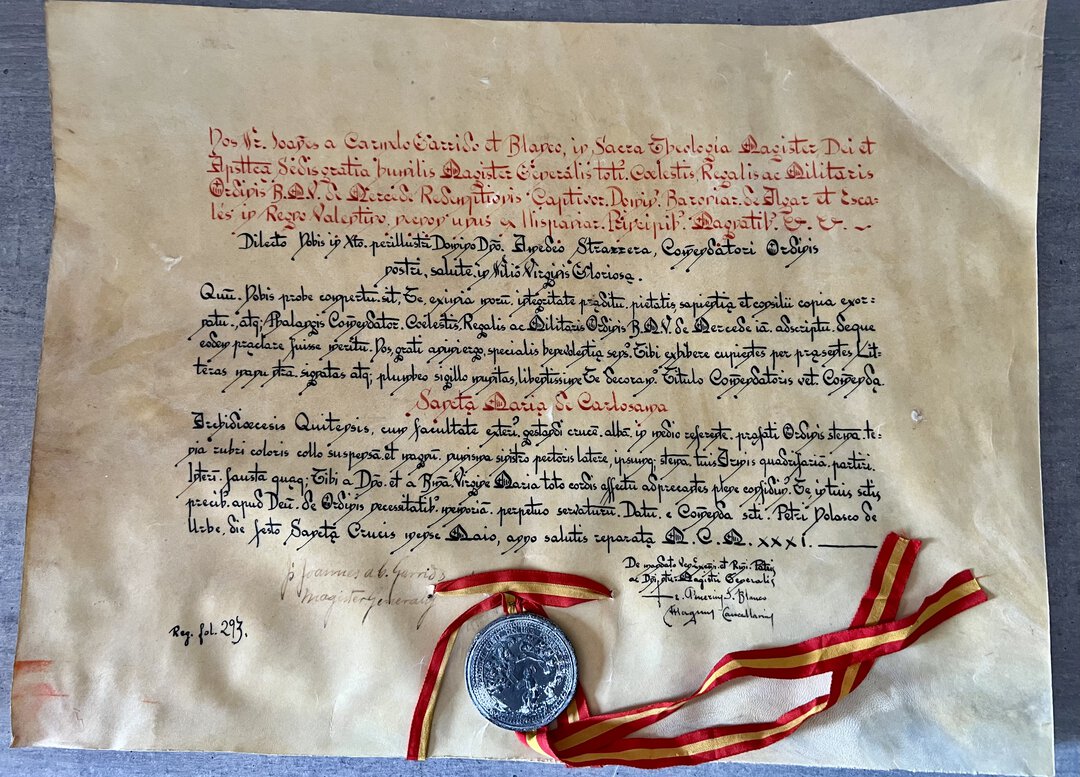 Nos Fr. Joannes a Carmelo Garrido et Blanco, in Sacra Theologia Magister Dei et
Apstlcæ Sedis gratia humilis Magister Generalis toti. Cœlestis, Regalis ac Militaris
Ordinis B.M.V. de Mercede Redemptionis Captivor. Domin. Baroniar. de Algar et Esca-
lés in Regno Valentino, necnon unus ex Hispaniar. Principib. Magnatib. &. &. ~
Dilecto Nobis in Xto. perillustri Domino Dno. Amedeo Strazzera, Comendatori Ordinis
nostri, salute, in Filio Virginis Gloriosæ.
Quu. Nobis probe compertu. sit, Te, eximia moru. integritate præditu. pietatis sapientia et consilii copia exor-
natu., atq; Phalangis Comendator. Cœlestis, Regalis ac Militaris Ordinis B.M.V. de Mercede iã. adscriptu. deque
eodem præclare fuisse meritu. Nos, grati animi ergo, specialis benevolentiæ Tibi exhibere cupientes per præsentes Lit-
teras manu signatas atq; plumbeo sigillo munitas, libentissime Te decoram. Titulo Comendatoris vel Comenda.
Sanctæ Mariæ de Carlosama
Archidiœcesis Quitensis, cum facultate gestandi crucẽ. albã. in medio referente. præfati Ordinis stema. tæ-
nia rubri coloris collo suspensã. et magnu. numisma sinistro pectoris latere, ipsunq; stema. tuis Armis quadrifariã. partiri.
Interi. fausta quæq; Tibi a Dno. et a Virgine Maria toto cordis affectu adprecantes plene confidim. Te in tuis
precib. apud Deu. de Ordinis necessitatib. memoriã. perpetuo servaturu. Datu. e Comenda scti. Petri Nolasco de
Urbe, die festo Sanctæ Crucis mense Maio, anno salutis reparatæ M.C.M.XXXI.
De mandato Rmi. Patris
ac Dni. Magistri Generalis
F. Joannes a C. Garrido
Magister Generalis
Blanco
Magnus Cancellarius
Reg. fol. 293.